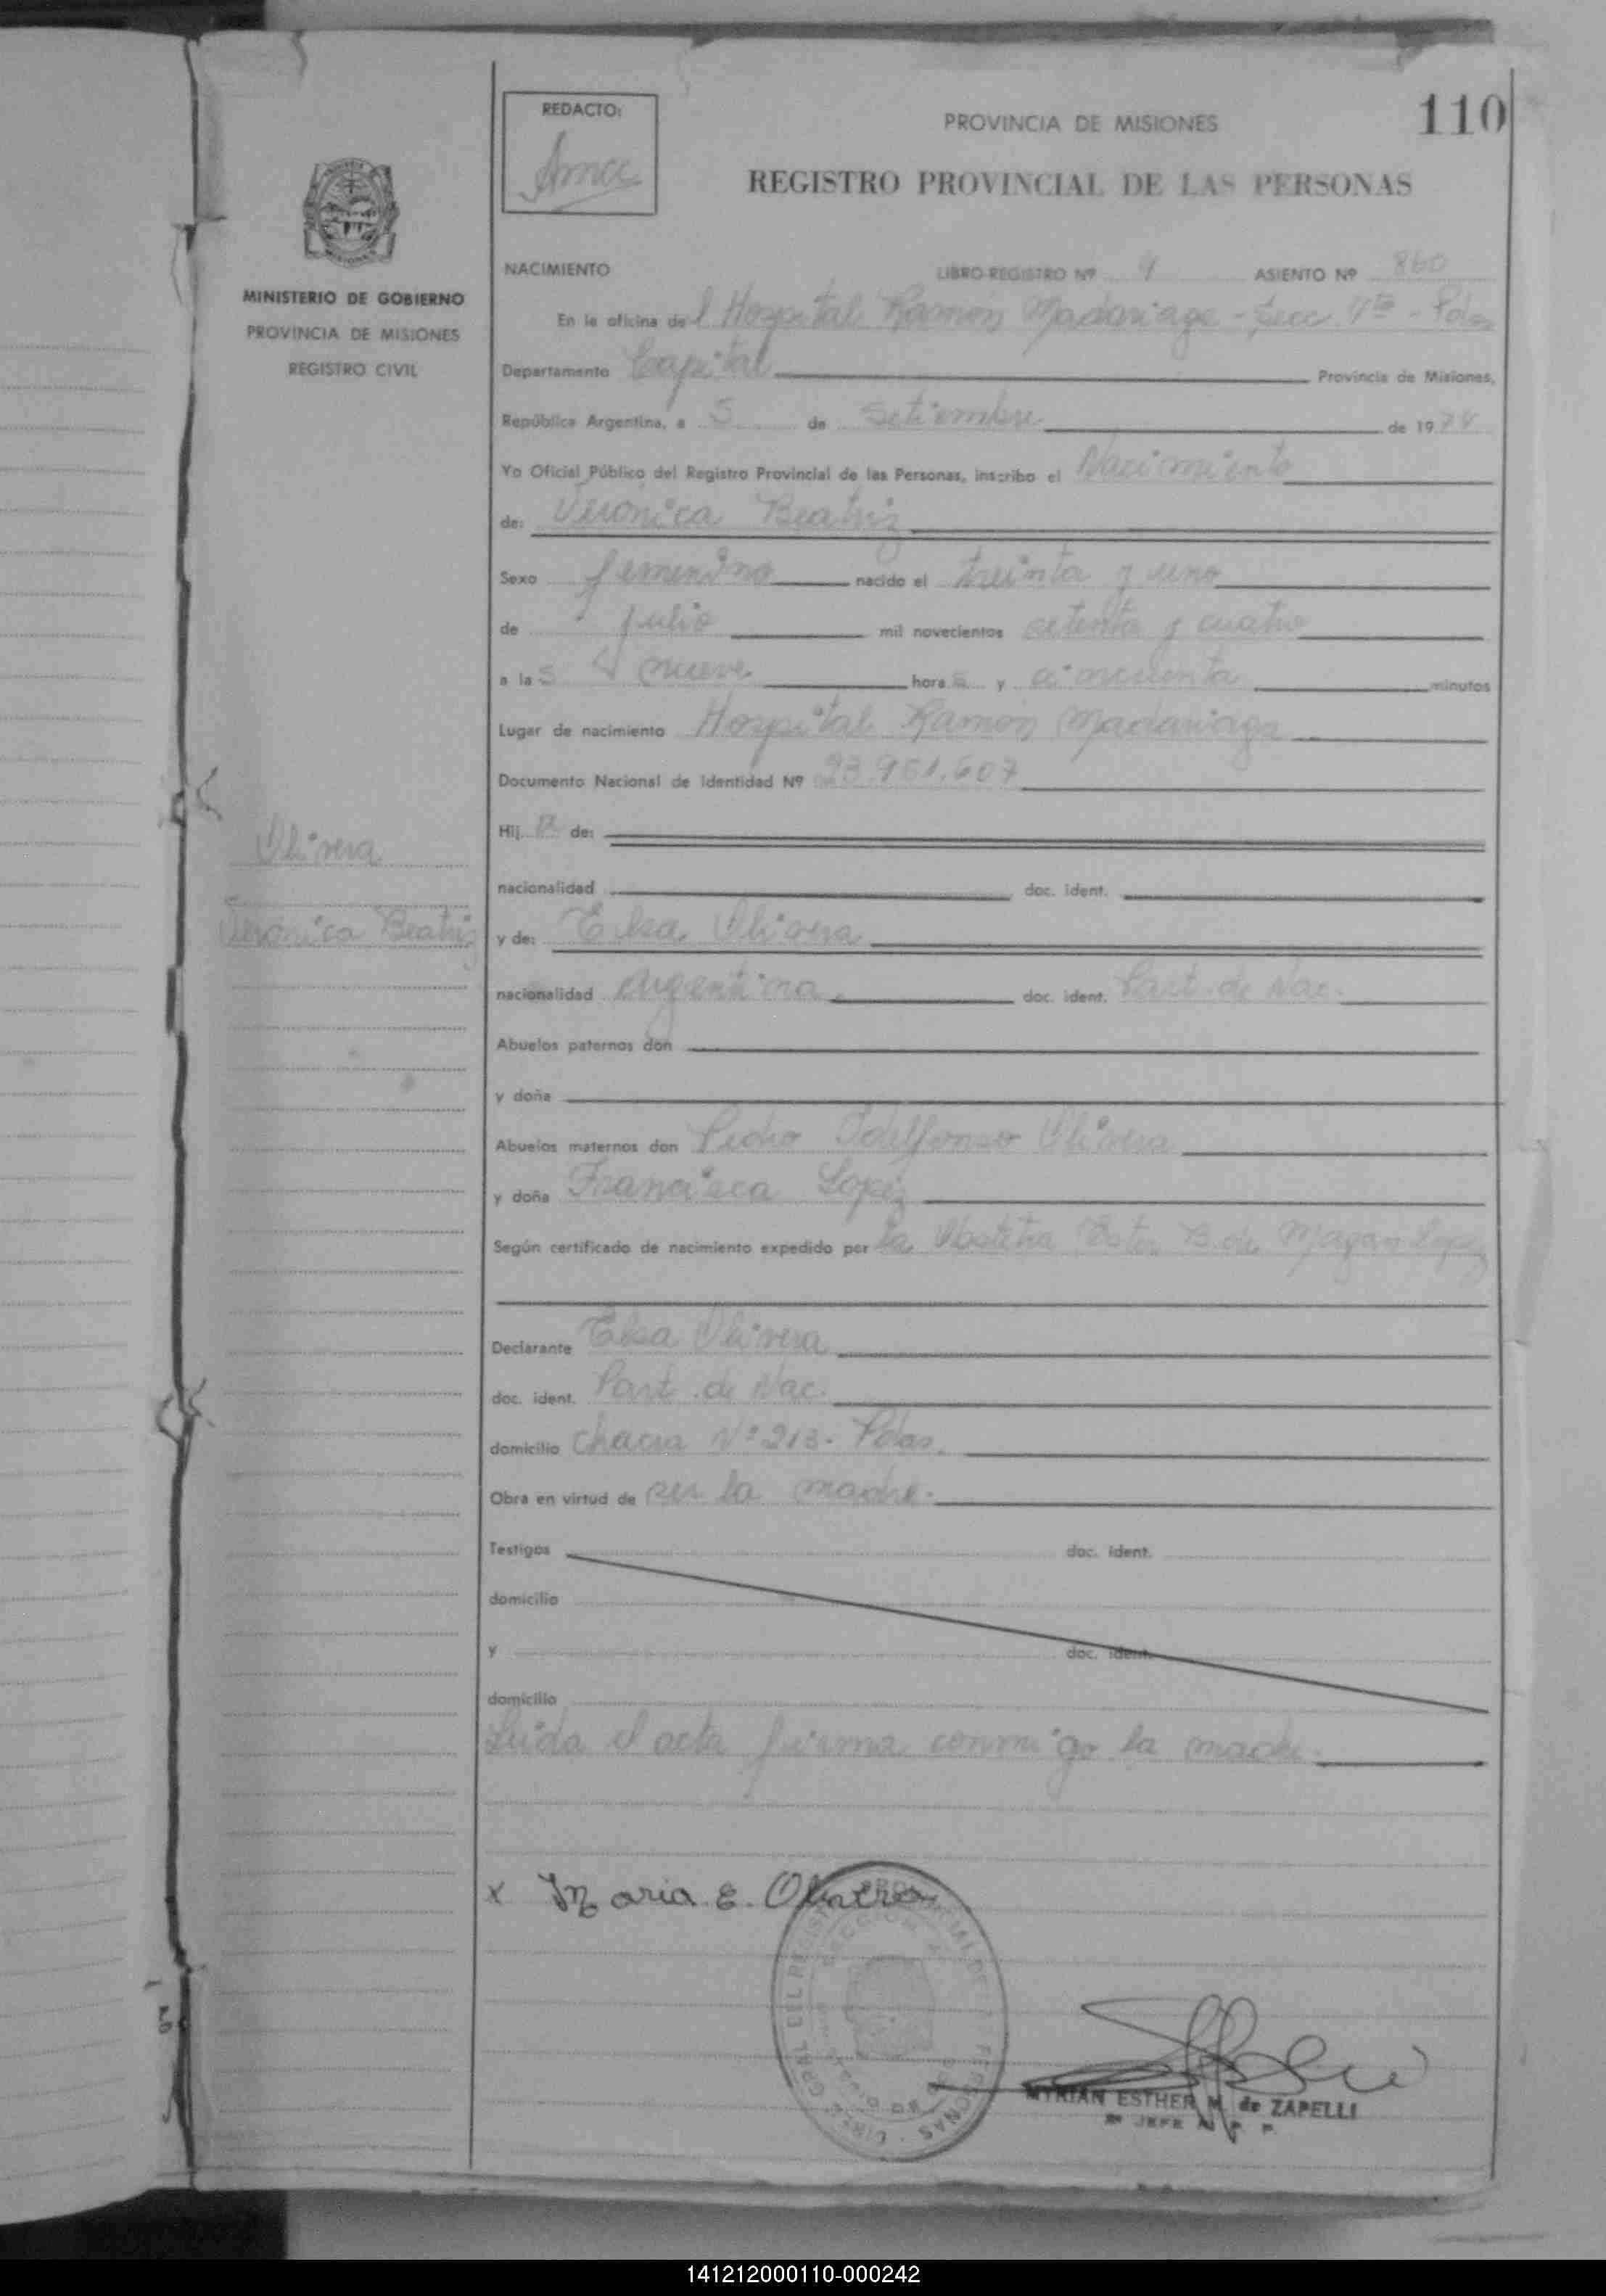 110
REDACTO:
PROVINCIA DE MISIONES
REGISTRO PROVINCIAL DE LAS PERSONAS
MINISTERIO DE GOBIERNO
PROVINCIA DE MISIONES
REGISTRO CIVIL
NACIMIENTO LIBRO-REGISTRO Nº 4 ASIENTO Nº 860
En la oficina del Hospital Ramón Madariaga - Secc. 4ta - Pdas
Departamento Capital Provincia de Misiones,
República Argentina, a 5 de Setiembre de 1974
Yo Oficial Público del Registro Provincial de las Personas, inscribo el Nacimiento
de: Veronica Beatriz
Sexo femenino nacido el treinta y uno
de julio mil novecientos setenta y cuatro
a las nueve horas y cincuenta minutos
Lugar de nacimiento Hospital Ramón Madariaga
Documento Nacional de Identidad Nº 23.961.607
Hija de:
nacionalidad doc. ident.
Olivera
Veronica Beatriz
y de: Elsa Olivera
nacionalidad argentina doc. ident. Part. de Nac.
Abuelos paternos don
y doña
Abuelos maternos don Pedro Idelfonso Olivera
y doña Francisca Lopez
Según certificado de nacimiento expedido por la Obstetra Ester B. de Magan Lopez
Declarante Elsa Olivera
doc. ident. Part. de Nac.
domicilio Chacra Nº 213 - Pdas.
Obra en virtud de ser la madre.
Testigos doc. ident.
domicilio
y doc. ident.
domicilio
Leida el acta firma conmigo la madre.
x Maria E. Olivera
MYRIAN ESTHER M. de ZAPELLI
JEFE
141212000110-000242